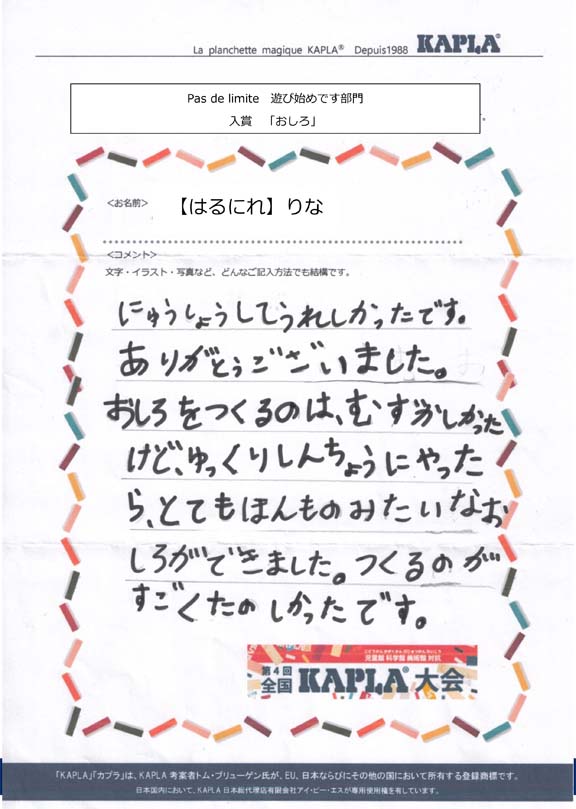 La planchette magique KAPLA® Depuis1988 KAPLA®
Pas de limite 遊び始めです部門
入賞 「おしろ」
<お名前> 【はるにれ】りな
<コメント>
文字・イラスト・写真など、どんなご記入方法でも結構です。
にゅうしょうしてうれしかったです。
ありがとうございました。
おしろをつくるのは、むずかしかった
けど、ゆっくりしんちょうにやった
ら、とてもほんものみたいなお
しろができました。つくるのが
すごくたのしかったです。
じどうかん かがくかん びじゅつかん たいこう
児童館 科学館 美術館 対抗
第4回
全国 KAPLA® 大会
「KAPLA」「カプラ」は、KAPLA 考案者トム・ブリューゲン氏が、EU、日本ならびにその他の国において所有する登録商標です。
日本国内において、KAPLA 日本総代理店有限会社アイ・ピー・エスが専用使用権を有しています。